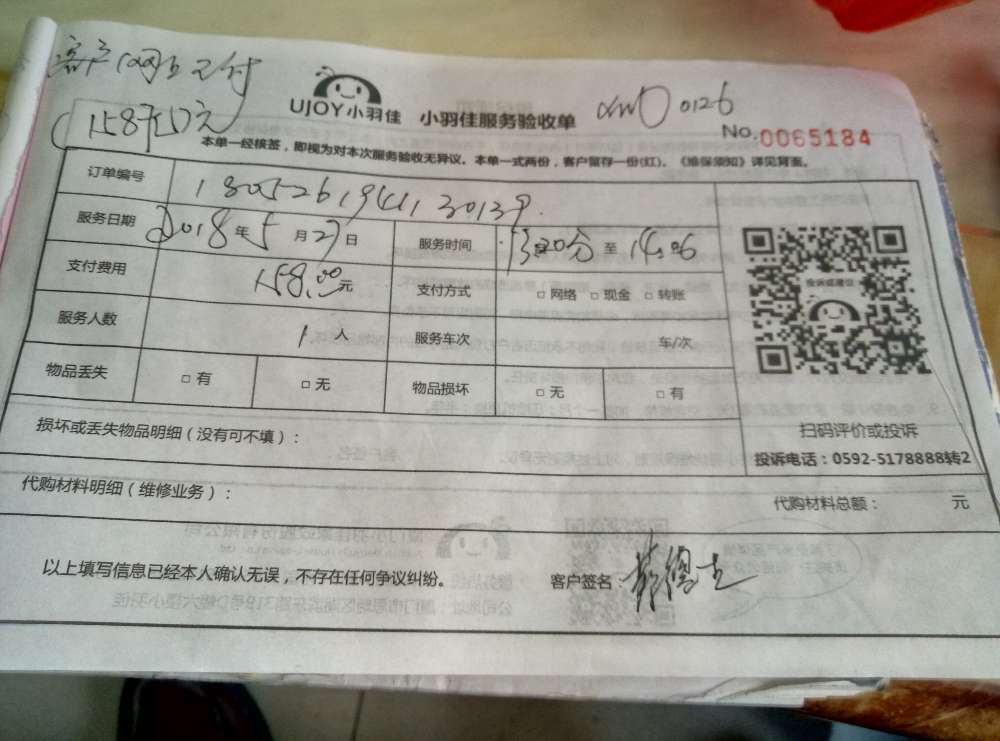 客户网上支付
(158元)
UJOY小羽佳 小羽佳服务验收单
0126
No.0065184
本单一经核签，即视为对本次服务验收无异议。本单一式两份，客户留存一份(红)。《维保须知》详见背面。
订单编号
服务日期 2018年5月27日 服务时间 至 14:06
支付费用 158.00元 支付方式 □网络 □现金 □转账
服务人数 1人 服务车次 车/次
物品丢失 □有 □无 物品损坏 □无 □有
投诉或建议
扫码评价或投诉
投诉电话：0592-5178888转2
损坏或丢失物品明细（没有可不填）：
代购材料明细（维修业务）： 代购材料总额： 元
以上填写信息已经本人确认无误，不存在任何争议纠纷。 客户签名：